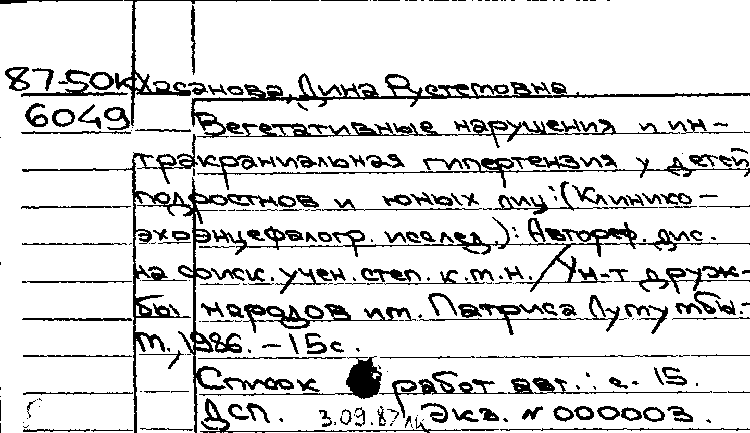 87-50К Хасанова, Дина Рустемовна.
6049 Вегетативные нарушения и ин-
тракраниальная гипертензия у детей
подростков и юных лиц: (Клинико-
эхоэнцефалогр. исслед.): Автореф. дис.
на соиск. учен. степ. к.м.н. / Ун-т друж-
бы народов им. Патриса Лумумбы. -
М., 1986. - 15с.
Список работ авт.: с. 15.
ДСП. 3.09.87 Экз. N 000003.